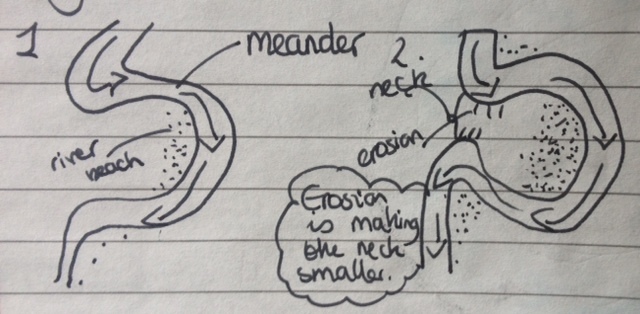 1
meander
river
beach
2.
neck
erosion
Erosion
is making
the neck
smaller.